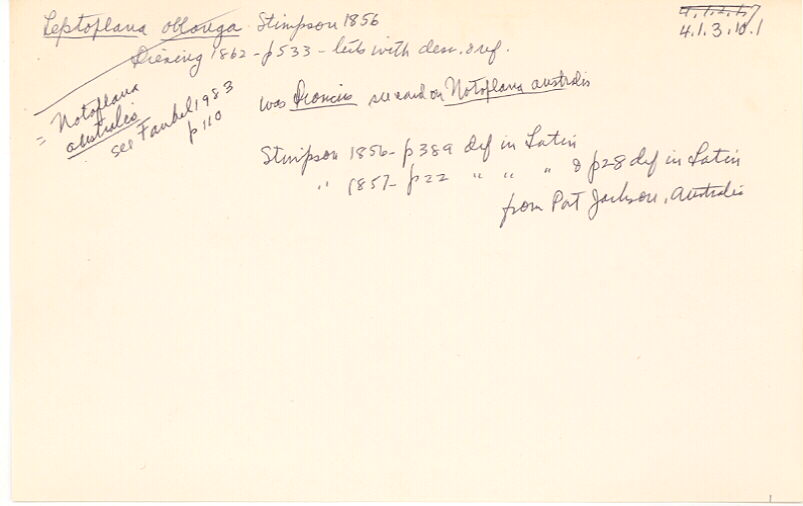 Leptoplana oblonga Stimpson 1856
4.1.2.6.7
4.1.3.10.1
Diesing 1862 - p533 - lists with desc. & ref.
= Notoplana
australis
see Faubel 1983
p110
was Dioncus see card on Notoplana australis
Stimpson 1856 - p389 def in Latin
" 1857 - p22 " " " & p28 def in Latin
from Port Jackson, Australia